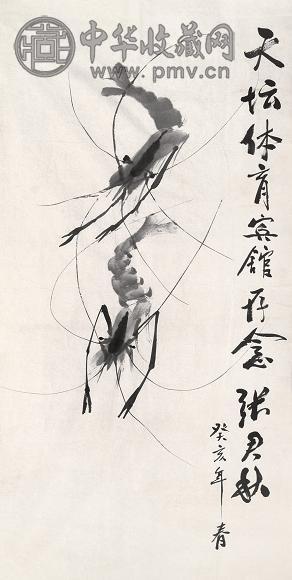 中华收藏网
www.pmv.cn
天坛体育宾馆存念 张君秋
癸亥年春